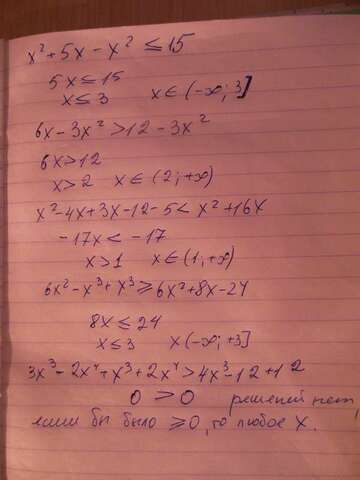 x² + 5x - x² ≤ 15
5x ≤ 15
x ≤ 3    x ∈ (-∞; 3]
6x - 3x² > 12 - 3x²
6x > 12
x > 2    x ∈ (2; +∞)
x² - 4x + 3x - 12 - 5 < x² + 16x
-17x < -17
x > 1    x ∈ (1, +∞)
6x² - x³ + x³ ≥ 6x² + 8x - 24
8x ≤ 24
x ≤ 3    x (-∞; +3]
3x³ - 2x⁴ + x³ + 2x⁴ > 4x³ - 12 + 12
0 > 0    решений нет,
если бы было ≥ 0, то любое x.